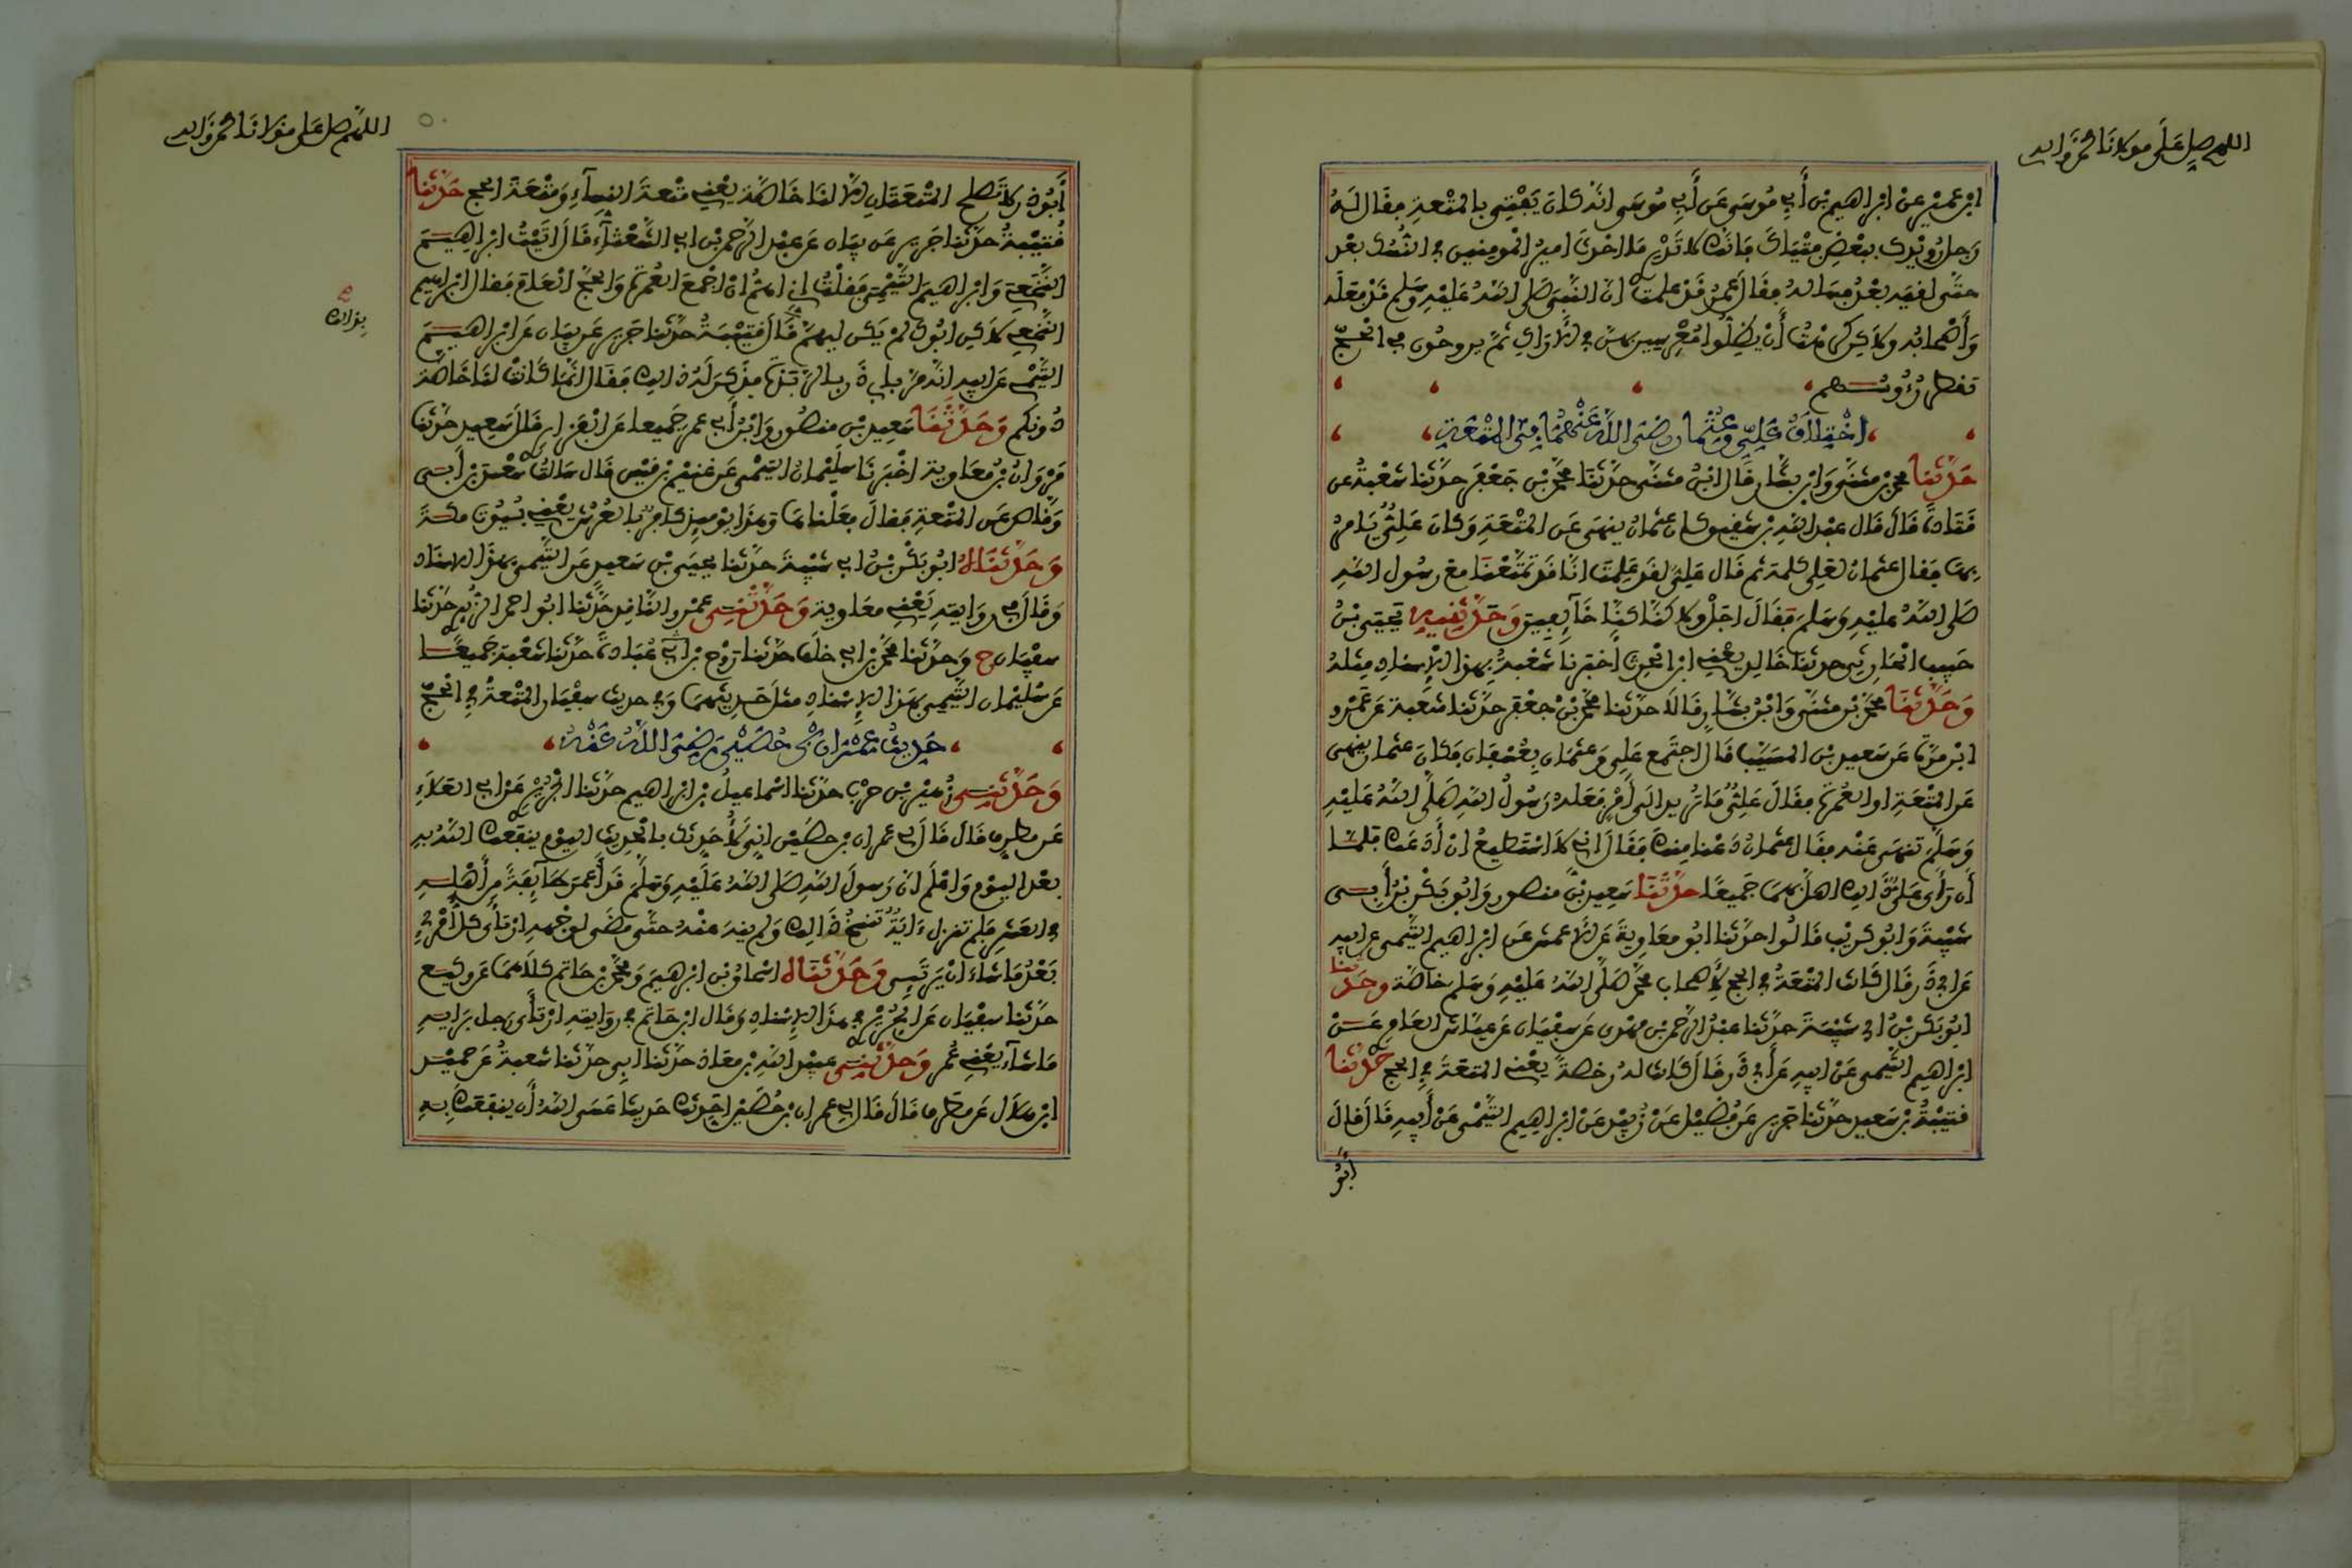 اللهم صل على مولانا محمد وآله
ابن عمير عن ابراهيم بن أبي موسى عن أبي موسى انه كان يفتي بالمتعة فقال له
رجل رويدك ببعض فتياك فانك لا تدري ما احدث امير المومنين في النسك بعد
حتى لقيه بعد فساله فقال عمر قد علمت ان النبي صلى الله عليه وسلم قد فعله
وأصحابه ولكن كرهت أن يظلوا معرسين بهن في الاراك ثم يروحون في الحج
تقطر رءوسهم
اختلاف علي وعثمان رضي الله عنهما في المتعة
حدثنا محمد بن مثنى وابن بشار قال ابن مثنى حدثنا محمد بن جعفر حدثنا شعبة عن
قتادة قال قال عبد الله بن شقيق كان عثمان ينهى عن المتعة وكان علي يامر
بها فقال عثمان لعلي كلمة ثم قال علي لقد علمت انا قد تمتعنا مع رسول الله
صلى الله عليه وسلم فقال اجل ولاكنا كنا خآيفين وحدثنيه يحيى بن
حبيب الحارثي حدثنا خالد يعني ابن الحرث أخبرنا شعبة بهذا الإسناد مثله
وحدثنا محمد بن مثنى وابن بشار قالا حدثنا محمد بن جعفر حدثنا شعبة عن عمرو
ابن مرة عن سعيد بن المسيب قال اجتمع علي وعثمان بعسفان فكان عثمان ينهى
عن المتعة او العمرة فقال علي ما تريد الى أمر فعله رسول الله صلى الله عليه
وسلم تنهى عنه فقال عثمان دعنا منك فقال اني لا استطيع ان أدعك فلما
أن رأى علي ذالك اهل بهما جميعا حدثنا سعيد بن منصور وابو بكر بن أبي
شيبة وابو كريب قالوا حدثنا ابو معاوية عن الاعمش عن ابراهيم التيمي عن ابيه
عن ابي ذر قال كانت المتعة في الحج لأصحاب محمد صلى الله عليه وسلم خاصة وحدثنا
ابو بكر بن ابي شيبة حدثنا عبد الرحمن بن مهدي عن سفيان عن عياش العامري عن
ابراهيم التيمي عن ابيه عن أبي ذر قال كانت له رخصة يعني المتعة في الحج حدثنا
قتيبة بن سعيد حدثنا جرير عن فضيل عن زبيد عن ابراهيم التيمي عن أبيه قال قال
أبو
اللهم صل على مولانا محمد وآله
أبو ذر لا تصلح المتعتان الا لنا خاصة يعني متعة النسآء ومتعة الحج حدثنا
قتيبة حدثنا جرير عن بيان عن عبد الرحمن بن ابي الشعثآء قال اتيت ابراهيم
النخعي وابراهيم التيمي فقلت اني اهم ان اجمع العمرة والحج العام فقال ابراهيم
النخعي لاكن ابوك لم يكن ليهم قال قتيبة حدثنا جرير عن بيان عن ابراهيم
التيمي عن ابيه انه مر بابي ذر بالربذة فذكر له ذالك فقال انما كانت لنا خاصة
بذالك
دونكم وحدثنا سعيد بن منصور وابن أبي عمر جميعا عن الفزاري قال سعيد حدثنا
مروان بن معاوية اخبرنا سليمان التيمي عن غنيم بن قيس قال سالت سعد بن أبي
وقاص عن المتعة فقال فعلناها وهذا يوميذ كافر بالعرش يعني بيوت مكة
وحدثناه ابو بكر بن ابي شيبة حدثنا يحيى بن سعيد عن التيمي بهذا الاسناد
وقال في روايته يعني معاوية وحدثني عمرو الناقد حدثنا ابو احمد الزبيري حدثنا
سفيان ح وحدثنا محمد بن ابي خلف حدثنا روح بن عبادة حدثنا شعبة جميعا
عن سليمان التيمي بهذا الإسناد مثل حديثهما وفي حديث سفيان المتعة في الحج
حديث عمران بن حصين رضي الله عنه
وحدثني زهير بن حرب حدثنا اسماعيل بن ابراهيم حدثنا الجريري عن ابي العلاء
عن مطرف قال قال لي عمران بن حصين اني لأحدثك بالحديث اليوم ينفعك الله به
بعد اليوم واعلم ان رسول الله صلى الله عليه وسلم قد أعمر طآيفة من أهله
في العشر فلم تنزل ءاية تنسخ ذالك ولم ينه عنه حتى مضى لوجهه ارتأى كل امرئ
بعد ما شاء ان يرتئي وحدثناه اسحاق بن ابرهيم ومحمد بن حاتم كلاهما عن وكيع
حدثنا سفيان عن الجريري في هذا الإسناد وقال ابن حاتم في روايته ارتأى رجل برايه
ما شآء يعني عمر وحدثني عبيد الله بن معاذ حدثنا ابي حدثنا شعبة عن حميد
ابن هلال عن مطرف قال قال لي عمران بن حصين احدثك حديثا عسى الله أن ينفعك به